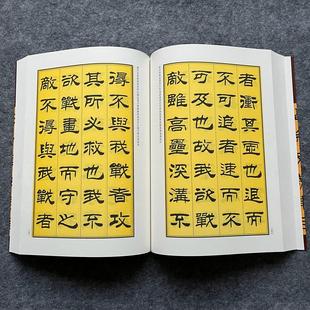 者衝其虛也退而
不可追者速而不
可及也故我欲戰
敵雖高壘深溝不
得不與我戰者攻
其所必救也我不
欲戰畫地而守之
敵不得與我戰者